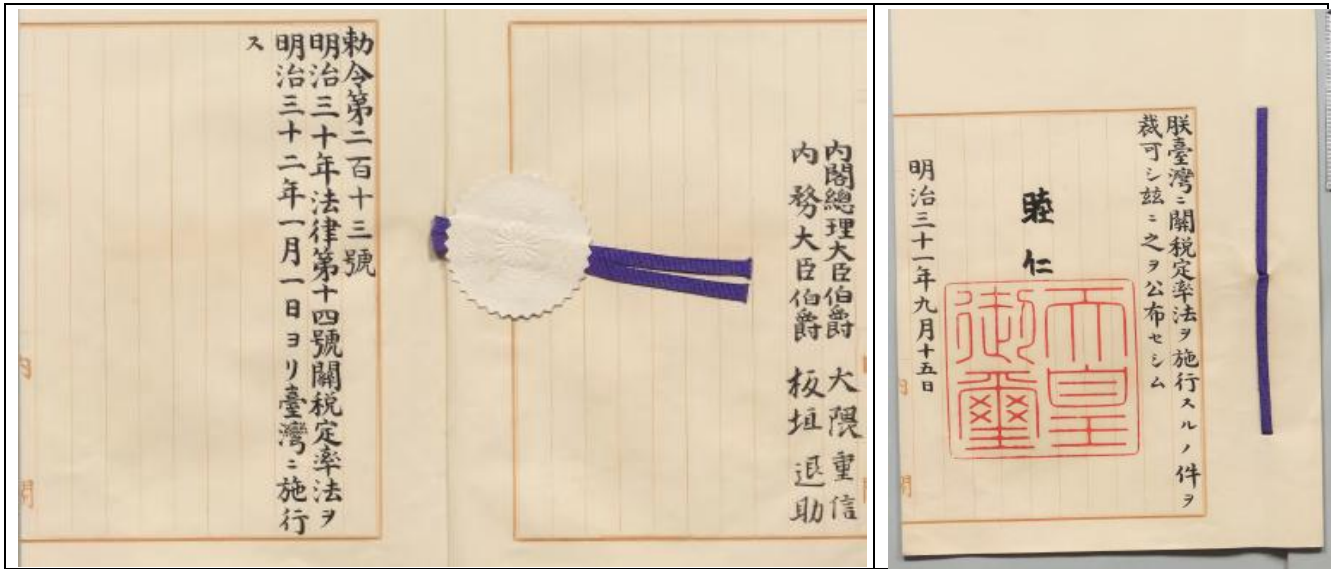 朕臺灣ニ關税定率法ヲ施行スルノ件ヲ
裁可シ玆ニ之ヲ公布セシム
睦仁
天皇御璽
明治三十一年九月十五日
内閣總理大臣伯爵 大隈重信
内務大臣伯爵 板垣退助
勅令第二百十三號
明治三十年法律第十四號關税定率法ヲ
明治三十二年一月一日ヨリ臺灣ニ施行
ス